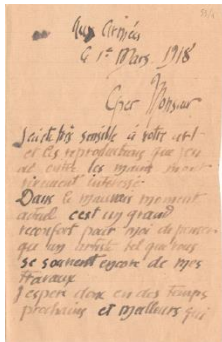 Aux Armées
le 1er Mars 1918
Cher Monsieur
J'ai été très sensible à votre
et les reproductions que j'en
ai les mains m'ont
vivement intéressé
Dans le mauvais moment
actuel c'est un grand
réconfort pour moi de penser
qu'un artiste tel que vous
se souvient encore de mes
travaux
J'espère donc en des temps
prochains et meilleurs qui